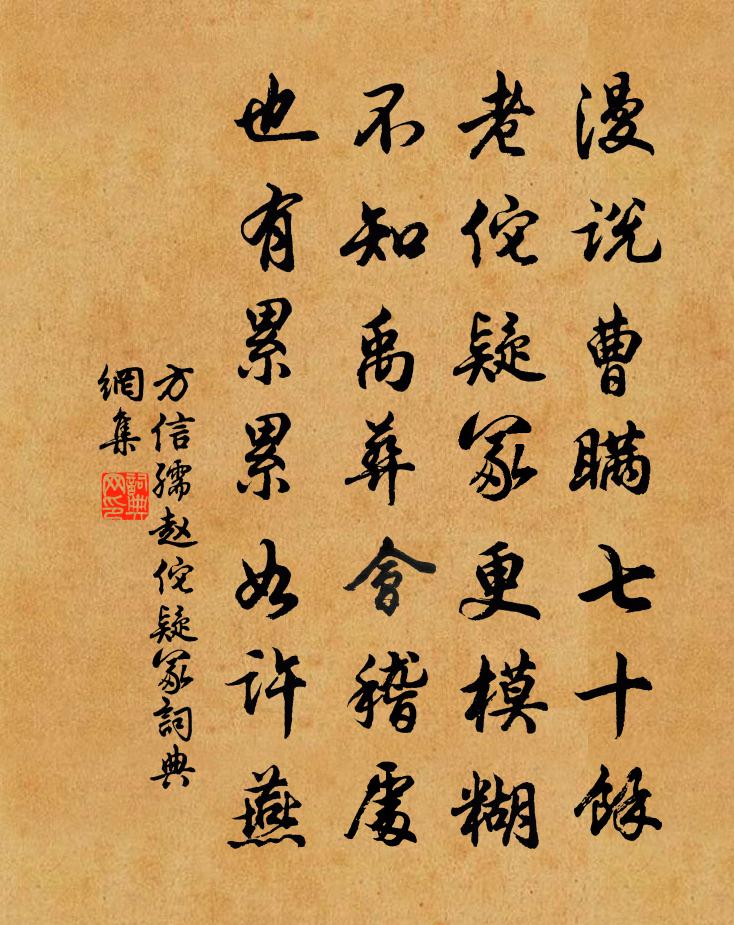 漫说曹瞒七十餘
老佗疑冢更模糊
不知禹葬會稽處
也有累累如许燕
方信孺赵佗疑冢詞典
網集
詞典
网印